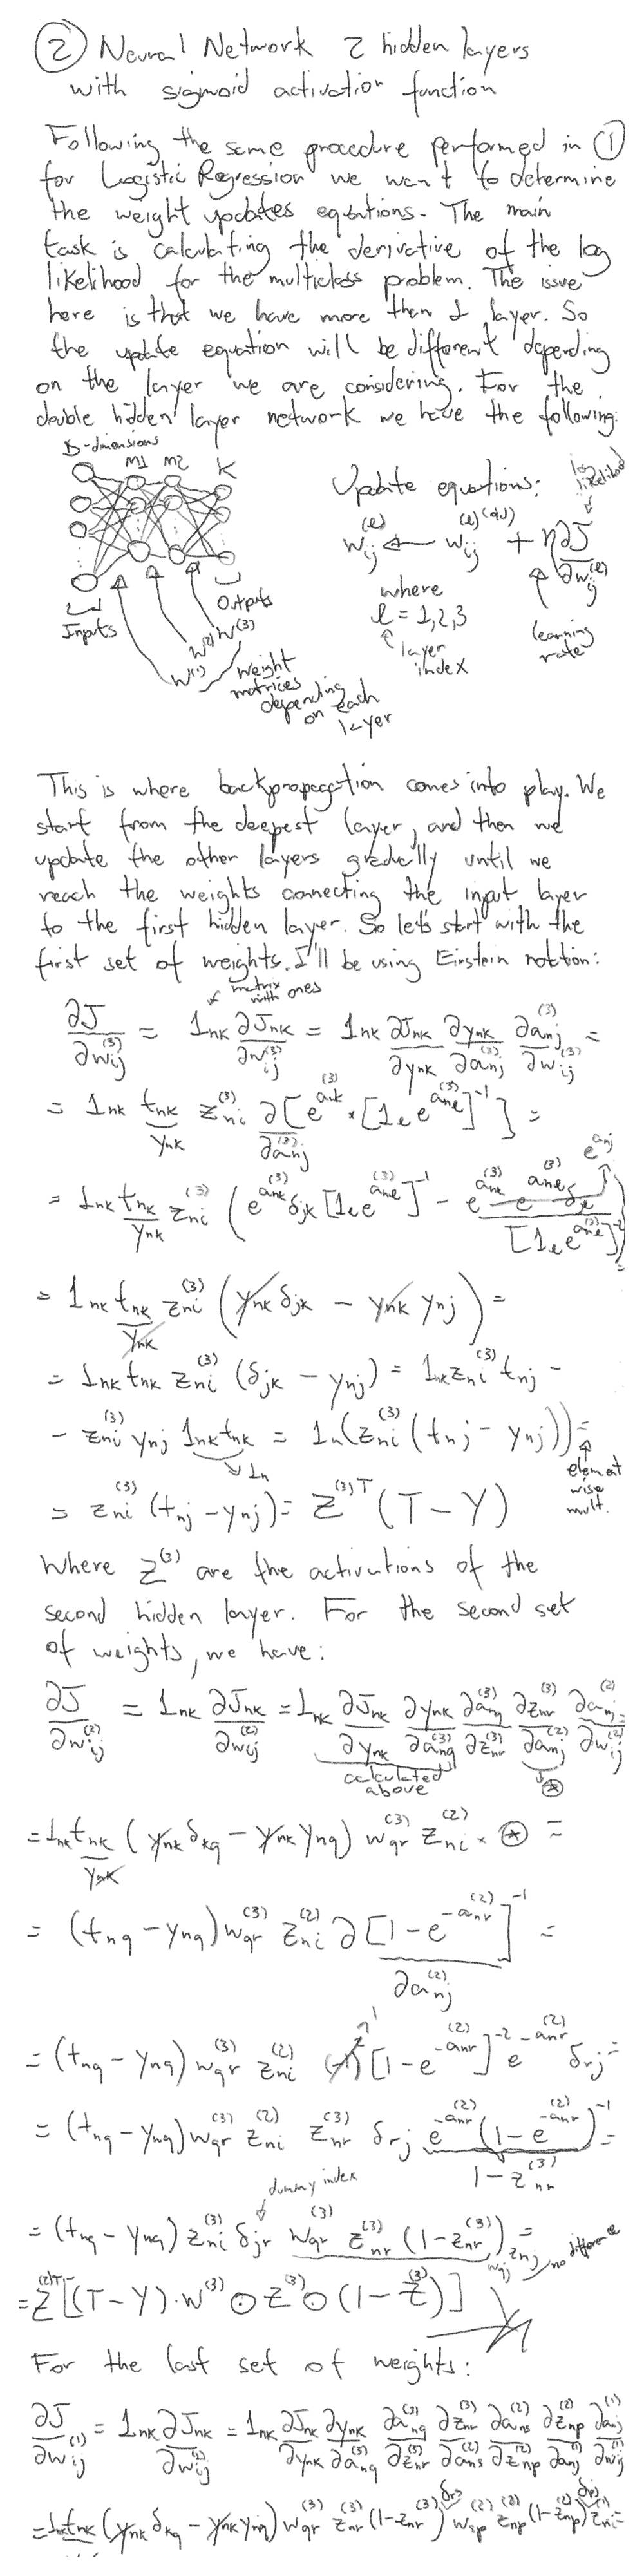 ② Neural Network 2 hidden layers
with sigmoid activation function
Following the same procedure performed in ①
for Logistic Regression we want to determine
the weight updates equations. The main
task is calculating the derivative of the log
likelihood for the multiclass problem. The issue
here is that we have more then 1 layer. So
the update equation will be different depending
on the layer we are considering. For the
double hidden layer network we have the following:
D-dimensions
M1 M2 K
Inputs
Outputs
W⁽¹⁾ W⁽²⁾ W⁽³⁾
weight
matrices
depending
on each
layer
Update equations:
log
likelihood
w_ij^(l) ← w_ij^(l)(old) + η ∂J/∂w_ij^(l)
where
l = 1,2,3
layer
index
learning
rate
This is where backpropagation comes into play. We
start from the deepest layer, and then we
update the other layers gradually until we
reach the weights connecting the input layer
to the first hidden layer. So let's start with the
first set of weights. I'll be using Einstein notation:
matrix
with ones
∂J/∂w_ij^(3) = 1_nk ∂J_nk/∂w_ij^(3) = 1_nk ∂J_nk/∂y_nk ∂y_nk/∂a_nj^(3) ∂a_nj^(3)/∂w_ij^(3) =
= 1_nk t_nk/y_nk z_ni^(3) ∂/∂a_nj^(3) [e^(a_nk^(3)) * [1_l e^(a_nl^(3))]^-1] =
= 1_nk t_nk/y_nk z_ni^(3) (e^(a_nk^(3)) δ_jk [1_l e^(a_nl^(3))]^-1 - e^(a_nk^(3)) e^(a_nl^(3)) δ_jl e^(a_nj) / [1_l e^(a_nl^(3))]^2) =
= 1_nk t_nk/y_nk z_ni^(3) (y_nk δ_jk - y_nk y_nj) =
= 1_nk t_nk z_ni^(3) (δ_jk - y_nj) = 1_nk z_ni^(3) t_nj -
- z_ni^(3) y_nj 1_nk t_nk = 1_n(z_ni^(3) (t_nj - y_nj)) =
1_n
element
wise
mult.
= z_ni^(3) (t_nj - y_nj) = Z^(3)T (T - Y)
Where Z^(3) are the activations of the
second hidden layer. For the second set
of weights, we have:
∂J/∂w_ij^(2) = 1_nk ∂J_nk/∂w_ij^(2) = 1_nk ∂J_nk/∂y_nk ∂y_nk/∂a_nq^(3) ∂a_nq^(3)/∂z_nr^(3) ∂z_nr^(3)/∂a_nj^(2) ∂a_nj^(2)/∂w_ij^(2) =
calculated
above
⊛
= 1_nk t_nk/y_nk (y_nk δ_kq - y_nk y_nq) w_qr^(3) z_ni^(2) × ⊛ =
= (t_nq - y_nq) w_qr^(3) z_ni^(2) ∂[1 - e^(-a_nr^(2))]^-1/∂a_nj^(2) =
= (t_nq - y_nq) w_qr^(3) z_ni^(2) (-1)² [1 - e^(-a_nr^(2))]^-2 e^(-a_nr^(2)) δ_rj =
= (t_nq - y_nq) w_qr^(3) z_ni^(2) z_nr^(3) δ_rj e^(-a_nr^(2)) (1 - e^(-a_nr^(2)))^-1 =
1 - z_nr^(3)
dummy index
= (t_nq - y_nq) z_ni^(3) δ_jr w_qr^(3) z_nr^(3) (1 - z_nr^(3)) =
w_qj z_nj
no difference
= Z^(2)T [(T - Y) · W^(3) ⊙ Z^(3) ⊙ (1 - Z^(3))]
For the last set of weights:
∂J/∂w_ij^(1) = 1_nk ∂J_nk/∂w_ij^(1) = 1_nk ∂J_nk/∂y_nk ∂y_nk/∂a_nq^(3) ∂a_nq^(3)/∂z_nr^(3) ∂z_nr^(3)/∂a_ns^(2) ∂a_ns^(2)/∂z_np^(2) ∂z_np^(2)/∂a_nj^(1) ∂a_nj^(1)/∂w_ij^(1)
= 1_nk t_nk (y_nk δ_kq - y_nk y_nq) w_qr^(3) z_nr^(3) (1 - z_nr^(3)) δ_rs w_sp^(2) z_np^(2) (1 - z_np^(2)) δ_pj z_ni^(1) =